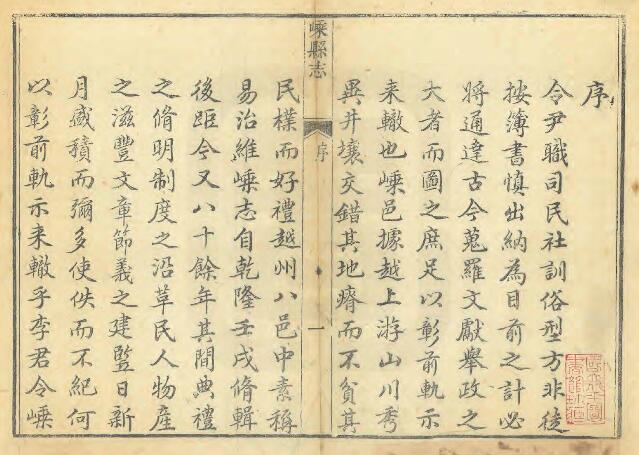 序
令尹職司民社訓俗型方非徒
按簿書慎出納為目前之計必
將通達古今蒐羅文獻舉政之
大者而圖之庶足以彰前軌示
来轍也嵊邑據越上游山川秀
異井壤交錯其地瘠而不貧其
嵊縣志 序 一
民樸而好禮越州八邑中素稱
易治維嵊志自乾隆壬戌脩輯
後距今又八十餘年其間典禮
之脩明制度之沿革民人物產
之滋豐文章節義之建豎日新
月盛積而彌多使佚而不紀何
以彰前軌示来轍乎李君令嵊